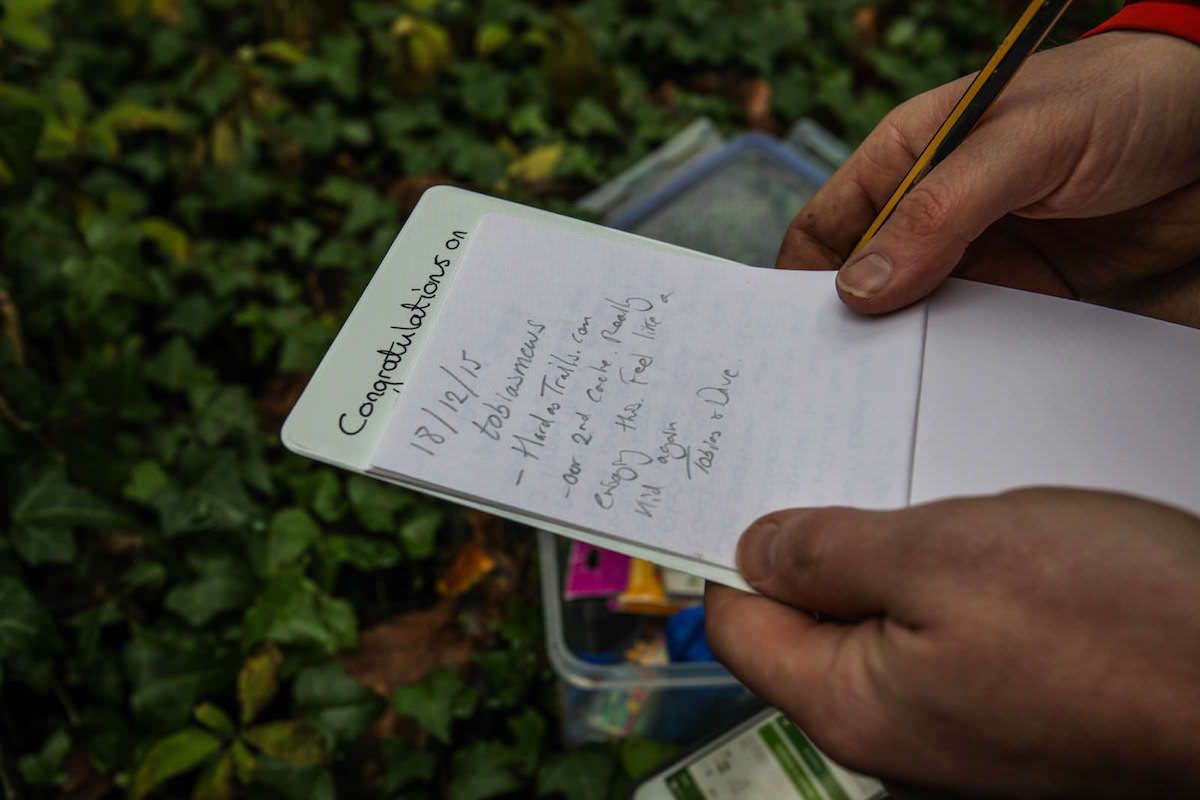 Congratulations on
18/12/15
tobiasmews
- Hard as Trails.com
- our 2nd Cache. Really
enjoy this. Feel like a
kid again
Tobias & Dave.